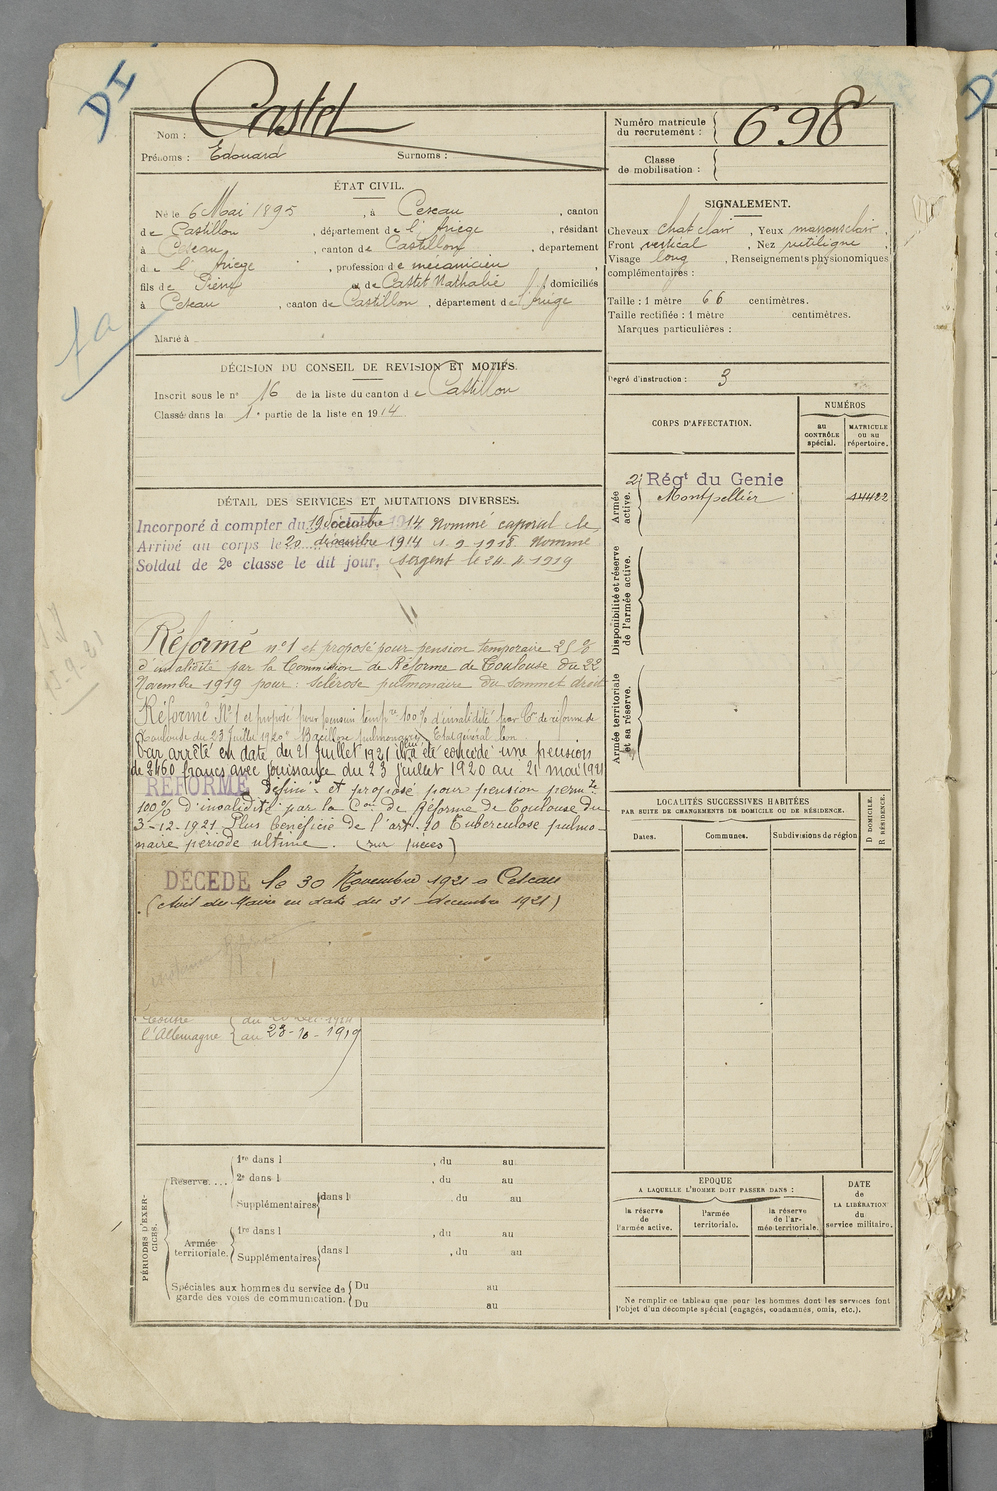 DI
Castel
698
Nom :
Numéro matricule du recrutement :
Prénoms : Edouard Surnoms :
Classe de mobilisation :
ÉTAT CIVIL.
Né le 6 Mai 1895, à Cescau, canton
de Castillon, département de l'Ariège, résidant
à Cescau, canton de Castillon, département
de l'Ariège, profession de mécanicien,
fils de Pierre et de Castet Nathalie, domiciliés
à Cescau, canton de Castillon, département de l'Ariège
Marié à
SIGNALEMENT.
Cheveux chat clair, Yeux marrons clair,
Front vertical, Nez rectiligne
Visage long, Renseignements physionomiques
complémentaires :
Taille : 1 mètre 66 centimètres.
Taille rectifiée : 1 mètre centimètres.
Marques particulières :
Degré d'instruction : 3
DÉCISION DU CONSEIL DE REVISION ET MOTIFS.
Inscrit sous le n° 16 de la liste du canton de Castillon
Classé dans la 1e partie de la liste en 1914
CORPS D'AFFECTATION.
NUMÉROS
au CONTRÔLE spécial.
MATRICULE ou au répertoire.
Armée active.
2e Régt du Genie
Montpellier 14422
Disponibilité et réserve de l'armée active.
Armée territoriale et sa réserve.
DÉTAIL DES SERVICES ET MUTATIONS DIVERSES.
Incorporé à compter du 19 décembre 1914 Nommé caporal le
Arrivé au corps le 20 décembre 1914 1-9-1918 Nommé
Soldat de 2e classe le dit jour. sergent le 24-4-1919
Réformé n°1 et proposé pour pension temporaire 25%
d'invalidité par la Commission de Réforme de Toulouse du 22
Novembre 1919 pour : sclérose pulmonaire du sommet droit
Réformé N°1 et proposé pour pension tempre 100% d'invalidité par Con de réforme de
Toulouse du 23 Juillet 1920 Bacillose pulmonaire Etat général bon
Par arrêté en date du 21 juillet 1921 il lui a été concédé une pension
de 2460 francs avec jouissance du 23 juillet 1920 au 21 mai 1921
RÉFORMÉ Définitt et proposé pour pension permte
100% d'invalidité par la Con de Réforme de Toulouse du
3-12-1921 Plus bénéficie de l'art. 10 Tuberculose pulmo-
naire période ultime. (sur pièces)
DÉCÉDÉ le 30 Novembre 1921 à Cescau
(Avis du Maire en date du 31 décembre 1921)
l'Allemagne au 23-10-1919
LOCALITÉS SUCCESSIVES HABITÉES
PAR SUITE DE CHANGEMENTS DE DOMICILE OU DE RÉSIDENCE.
Dates. Communes. Subdivisions de région
D DOMICILE. R RÉSIDENCE.
PÉRIODES D'EXERCICES.
Réserve....
1re dans l , du au
2e dans l , du au
Supplémentaires dans l , du au
Armée territoriale.
1re dans l , du au
Supplémentaires dans l , du au
Spéciales aux hommes du service de garde des voies de communication.
Du au
Du au
EPOQUE
A LAQUELLE L'HOMME DOIT PASSER DANS :
la réserve de l'armée active.
l'armée territoriale.
la réserve de l'armée territoriale.
DATE de LA LIBÉRATION du service militaire.
Ne remplir ce tableau que pour les hommes dont les services font
l'objet d'un décompte spécial (engagés, condamnés, omis, etc.).